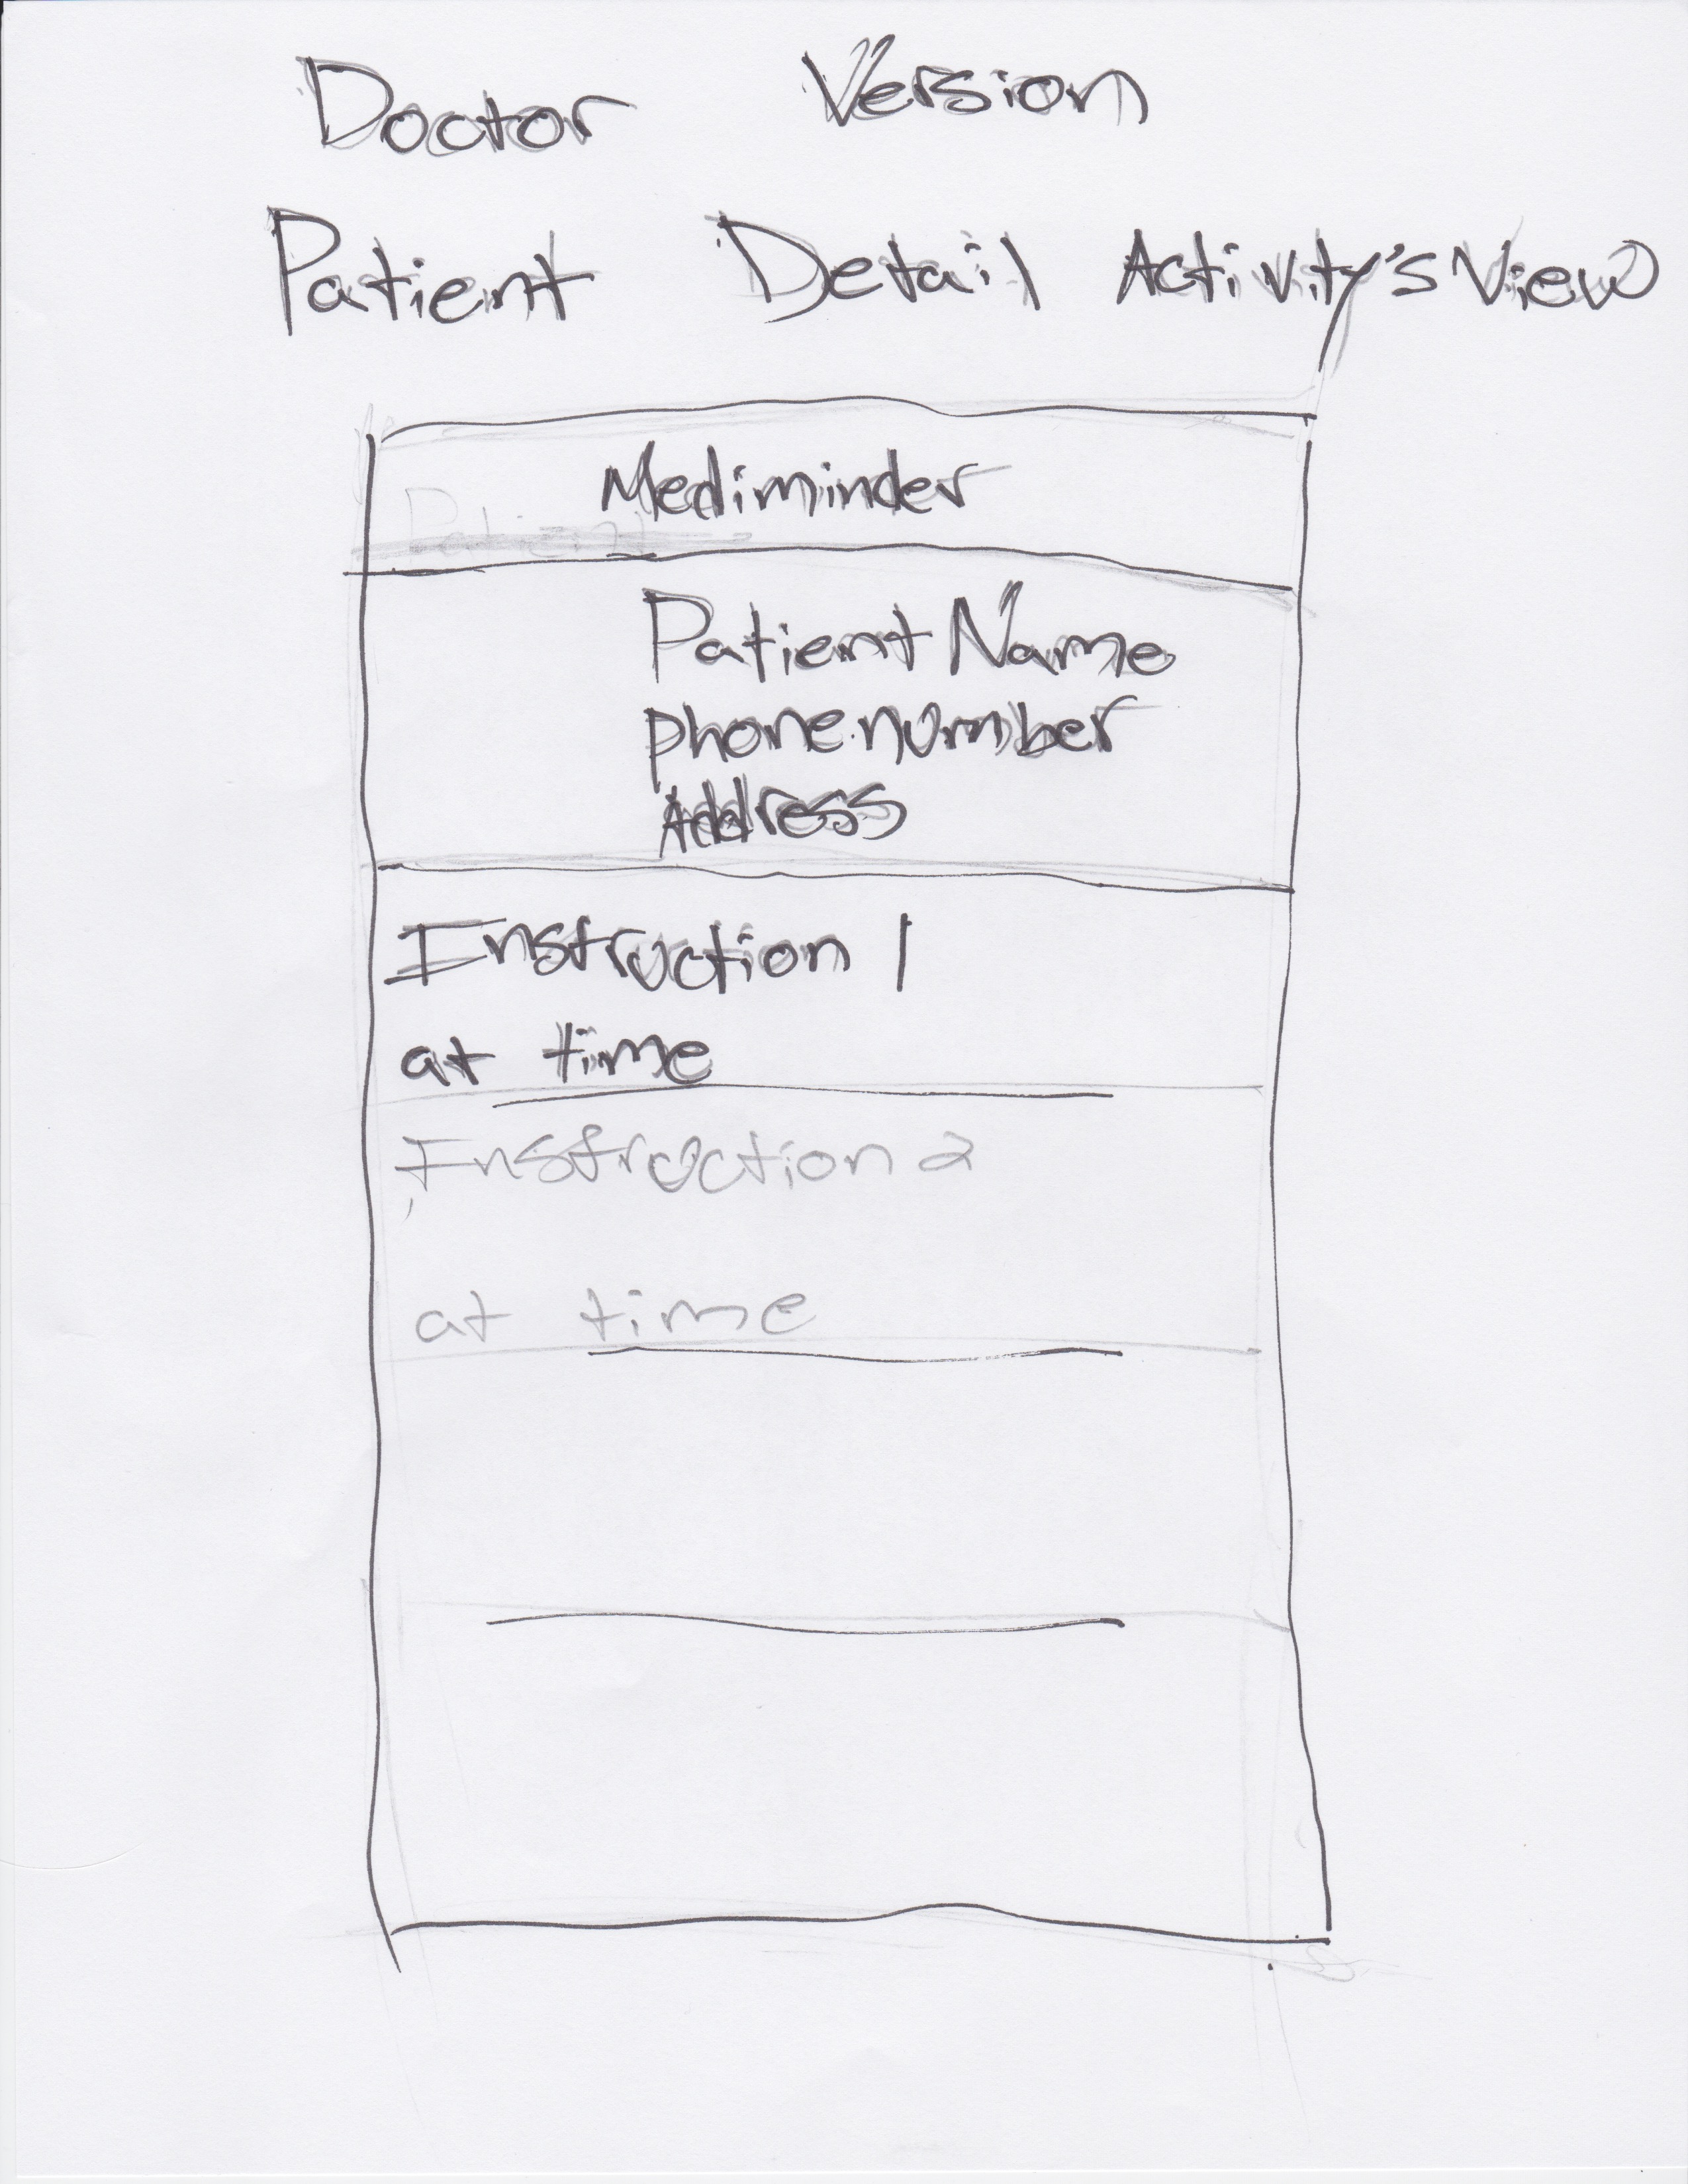 Doctor Version
Patient Detail Activity's View
Mediminder
Patient
Patient Name
phone number
Address
Instruction 1
at time
Instruction 2
at time